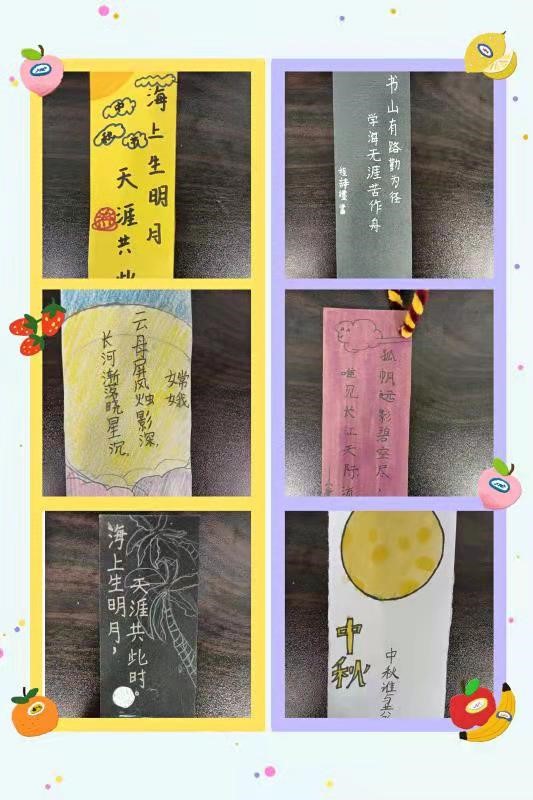 海上生明月
天涯共此
书山有路勤为径
学海无涯苦作舟
嫦娥
云母屏风烛影深,
长河渐落晓星沉。
孤帆远影碧空尽,
唯见长江天际流
海上生明月,
天涯共此时。
中秋
中秋谁与